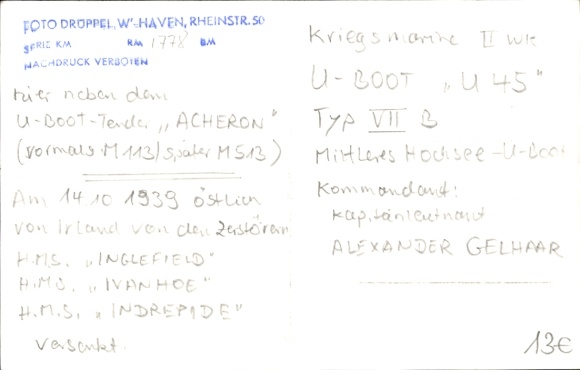 FOTO DRÜPPEL, W'HAVEN, RHEINSTR. 50
SERIE KM RM 1778 BM
NACHDRUCK VERBOTEN
hier neben dem
U-BOOT-Tender „ACHERON"
(vormals M 113/später M 513)
Am 14.10 1939 östlich
von Irland von den Zerstörern
H.M.S. „INGLEFIELD"
H.M.S. „IVANHOE"
H.M.S. „INDREPIDE"
versenkt.
Kriegsmarine II WK
U-BOOT „U 45"
Typ VII B
Mittleres Hochsee-U-Boot
Kommandant:
Kapitänleutnant
ALEXANDER GELHAAR
13€